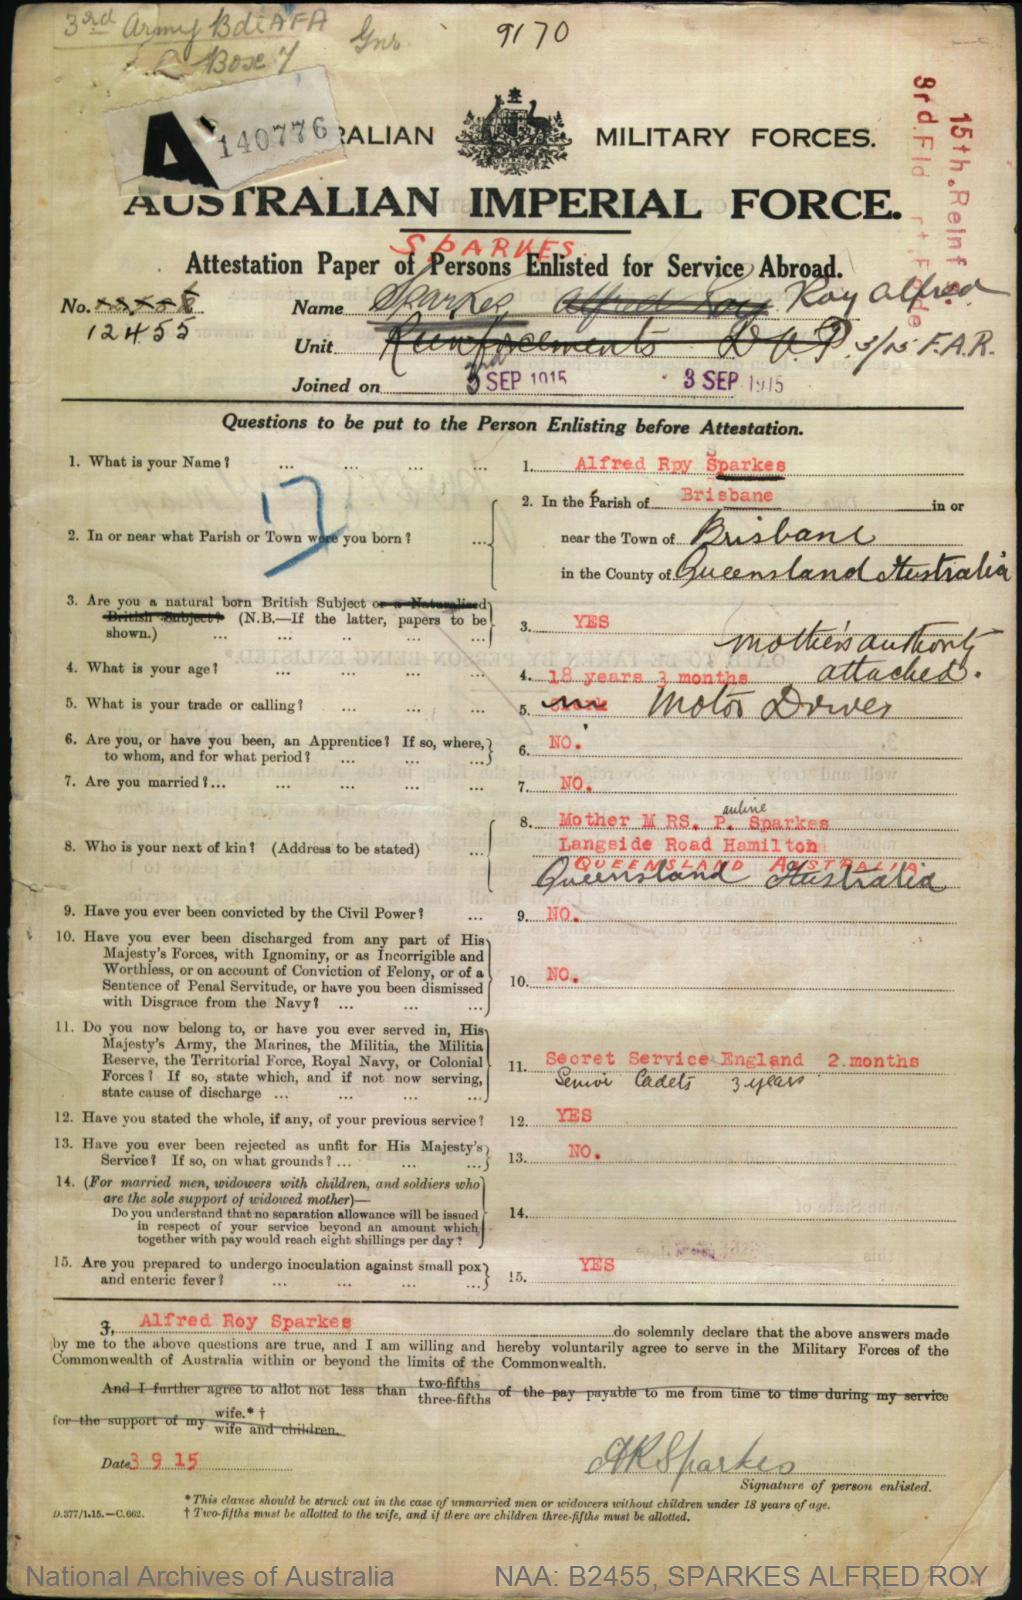 3rd Army Bde AFA
Gnr
9170
L Box 7
A 140776
RALIAN MILITARY FORCES.
AUSTRALIAN IMPERIAL FORCE.
15th. Reinf
3rd. Fld
SPARKES
Attestation Paper of Persons Enlisted for Service Abroad.
No. 12455
Name Sparkes Alfred Roy Roy Alfred
Unit Reinforcements 3/15 F.A.R.
Joined on 3 SEP 1915 3 SEP 1915
Questions to be put to the Person Enlisting before Attestation.
1. What is your Name? ... ... ... ... 1. Alfred Roy Sparkes
2. In or near what Parish or Town were you born? ... 2. In the Parish of Brisbane in or
near the Town of Brisbane
in the County of Queensland Australia
3. Are you a natural born British Subject or a Naturalised
British Subject? (N.B.—If the latter, papers to be
shown.) ... ... .. ... ... 3. YES
mother's authority
attached.
4. What is your age? ... ... ... ... 4. 18 years 3 months
5. What is your trade or calling? ... ... ... 5. Clerk Motor Driver
6. Are you, or have you been, an Apprentice? If so, where,
to whom, and for what period? ... ... ... 6. NO.
7. Are you married?... ... ... ... ... 7. NO.
8. Who is your next of kin? (Address to be stated) ... 8. Mother M RS. P. auline Sparkes
Langside Road Hamilton
QUEENSLAND AUSTRALIA
Queensland Australia
9. Have you ever been convicted by the Civil Power? ... 9. NO.
10. Have you ever been discharged from any part of His
Majesty's Forces, with Ignominy, or as Incorrigible and
Worthless, or on account of Conviction of Felony, or of a
Sentence of Penal Servitude, or have you been dismissed
with Disgrace from the Navy? ... ... ... 10. NO.
11. Do you now belong to, or have you ever served in, His
Majesty's Army, the Marines, the Militia, the Militia
Reserve, the Territorial Force, Royal Navy, or Colonial
Forces? If so, state which, and if not now serving,
state cause of discharge ... ... ... ... 11. Secret Service England 2.months
Senior Cadets 3 years
12. Have you stated the whole, if any, of your previous service? 12. YES
13. Have you ever been rejected as unfit for His Majesty's
Service? If so, on what grounds? ... ... ... 13. NO.
14. (For married men, widowers with children, and soldiers who
are the sole support of widowed mother)—
Do you understand that no separation allowance will be issued
in respect of your service beyond an amount which
together with pay would reach eight shillings per day? 14.
15. Are you prepared to undergo inoculation against small pox
and enteric fever? ... ... ... ... 15. YES
I, Alfred Roy Sparkes do solemnly declare that the above answers made
by me to the above questions are true, and I am willing and hereby voluntarily agree to serve in the Military Forces of the
Commonwealth of Australia within or beyond the limits of the Commonwealth.
And I further agree to allot not less than two-fifths three-fifths of the pay payable to me from time to time during my service
for the support of my wife.*† wife and children.
Date 3 9 15
ARSparkes
Signature of person enlisted.
*This clause should be struck out in the case of unmarried men or widowers without children under 18 years of age.
D.377/1.15.—C.662.
† Two-fifths must be allotted to the wife, and if there are children three-fifths must be allotted.
National Archives of Australia
NAA: B2455, SPARKES ALFRED ROY